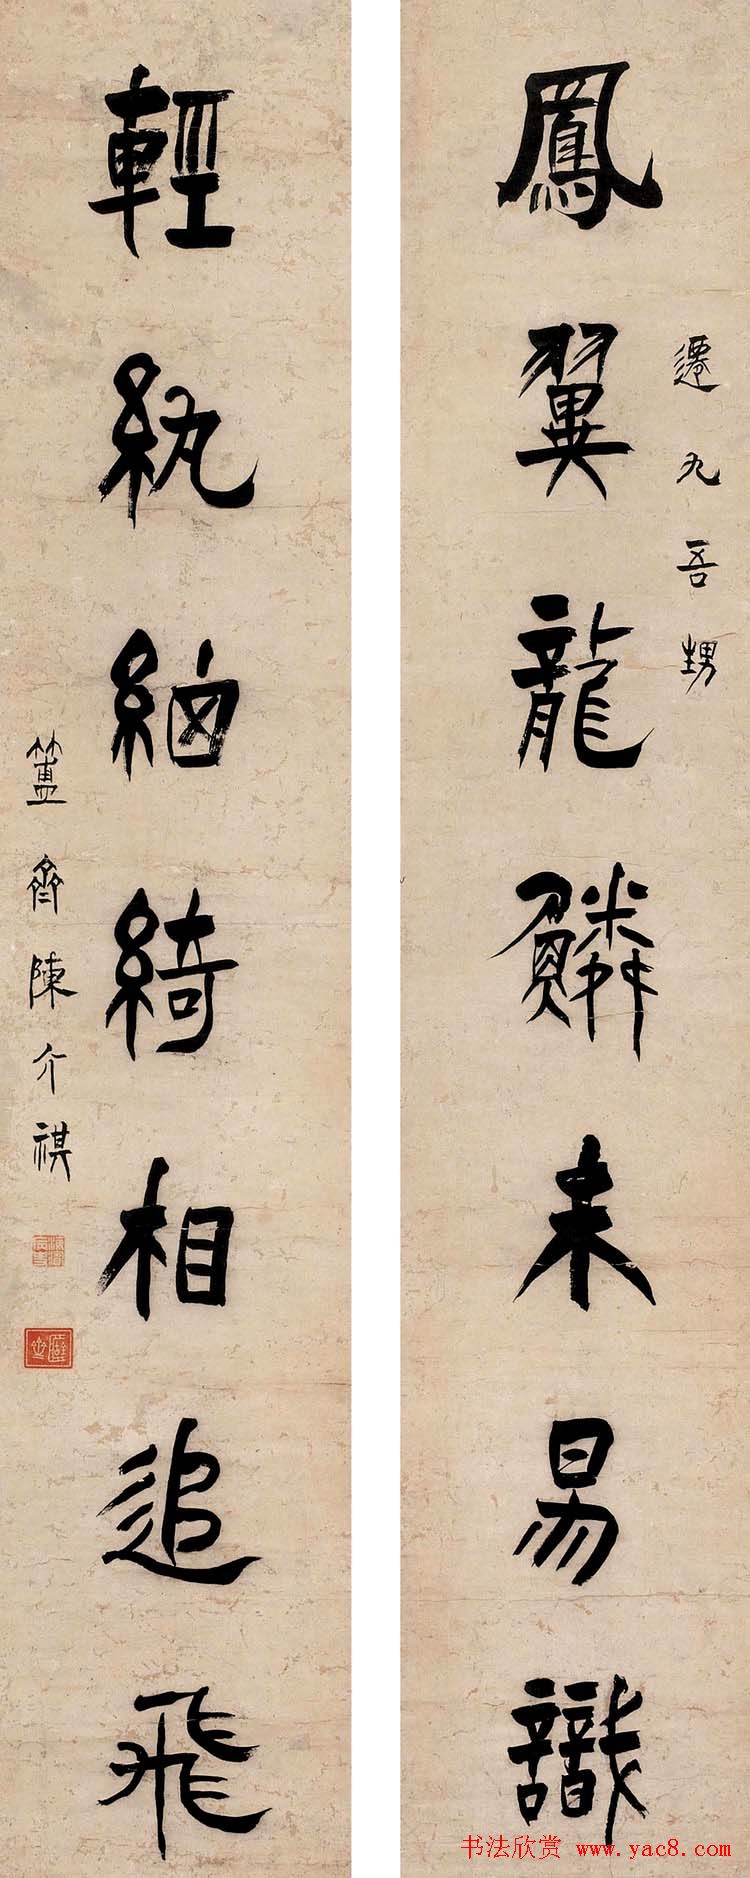 鳳翼龍鱗未易識
遷九吾甥
輕紈細綺相追飛
簠齋陳介祺
书法欣赏 www.yac8.com